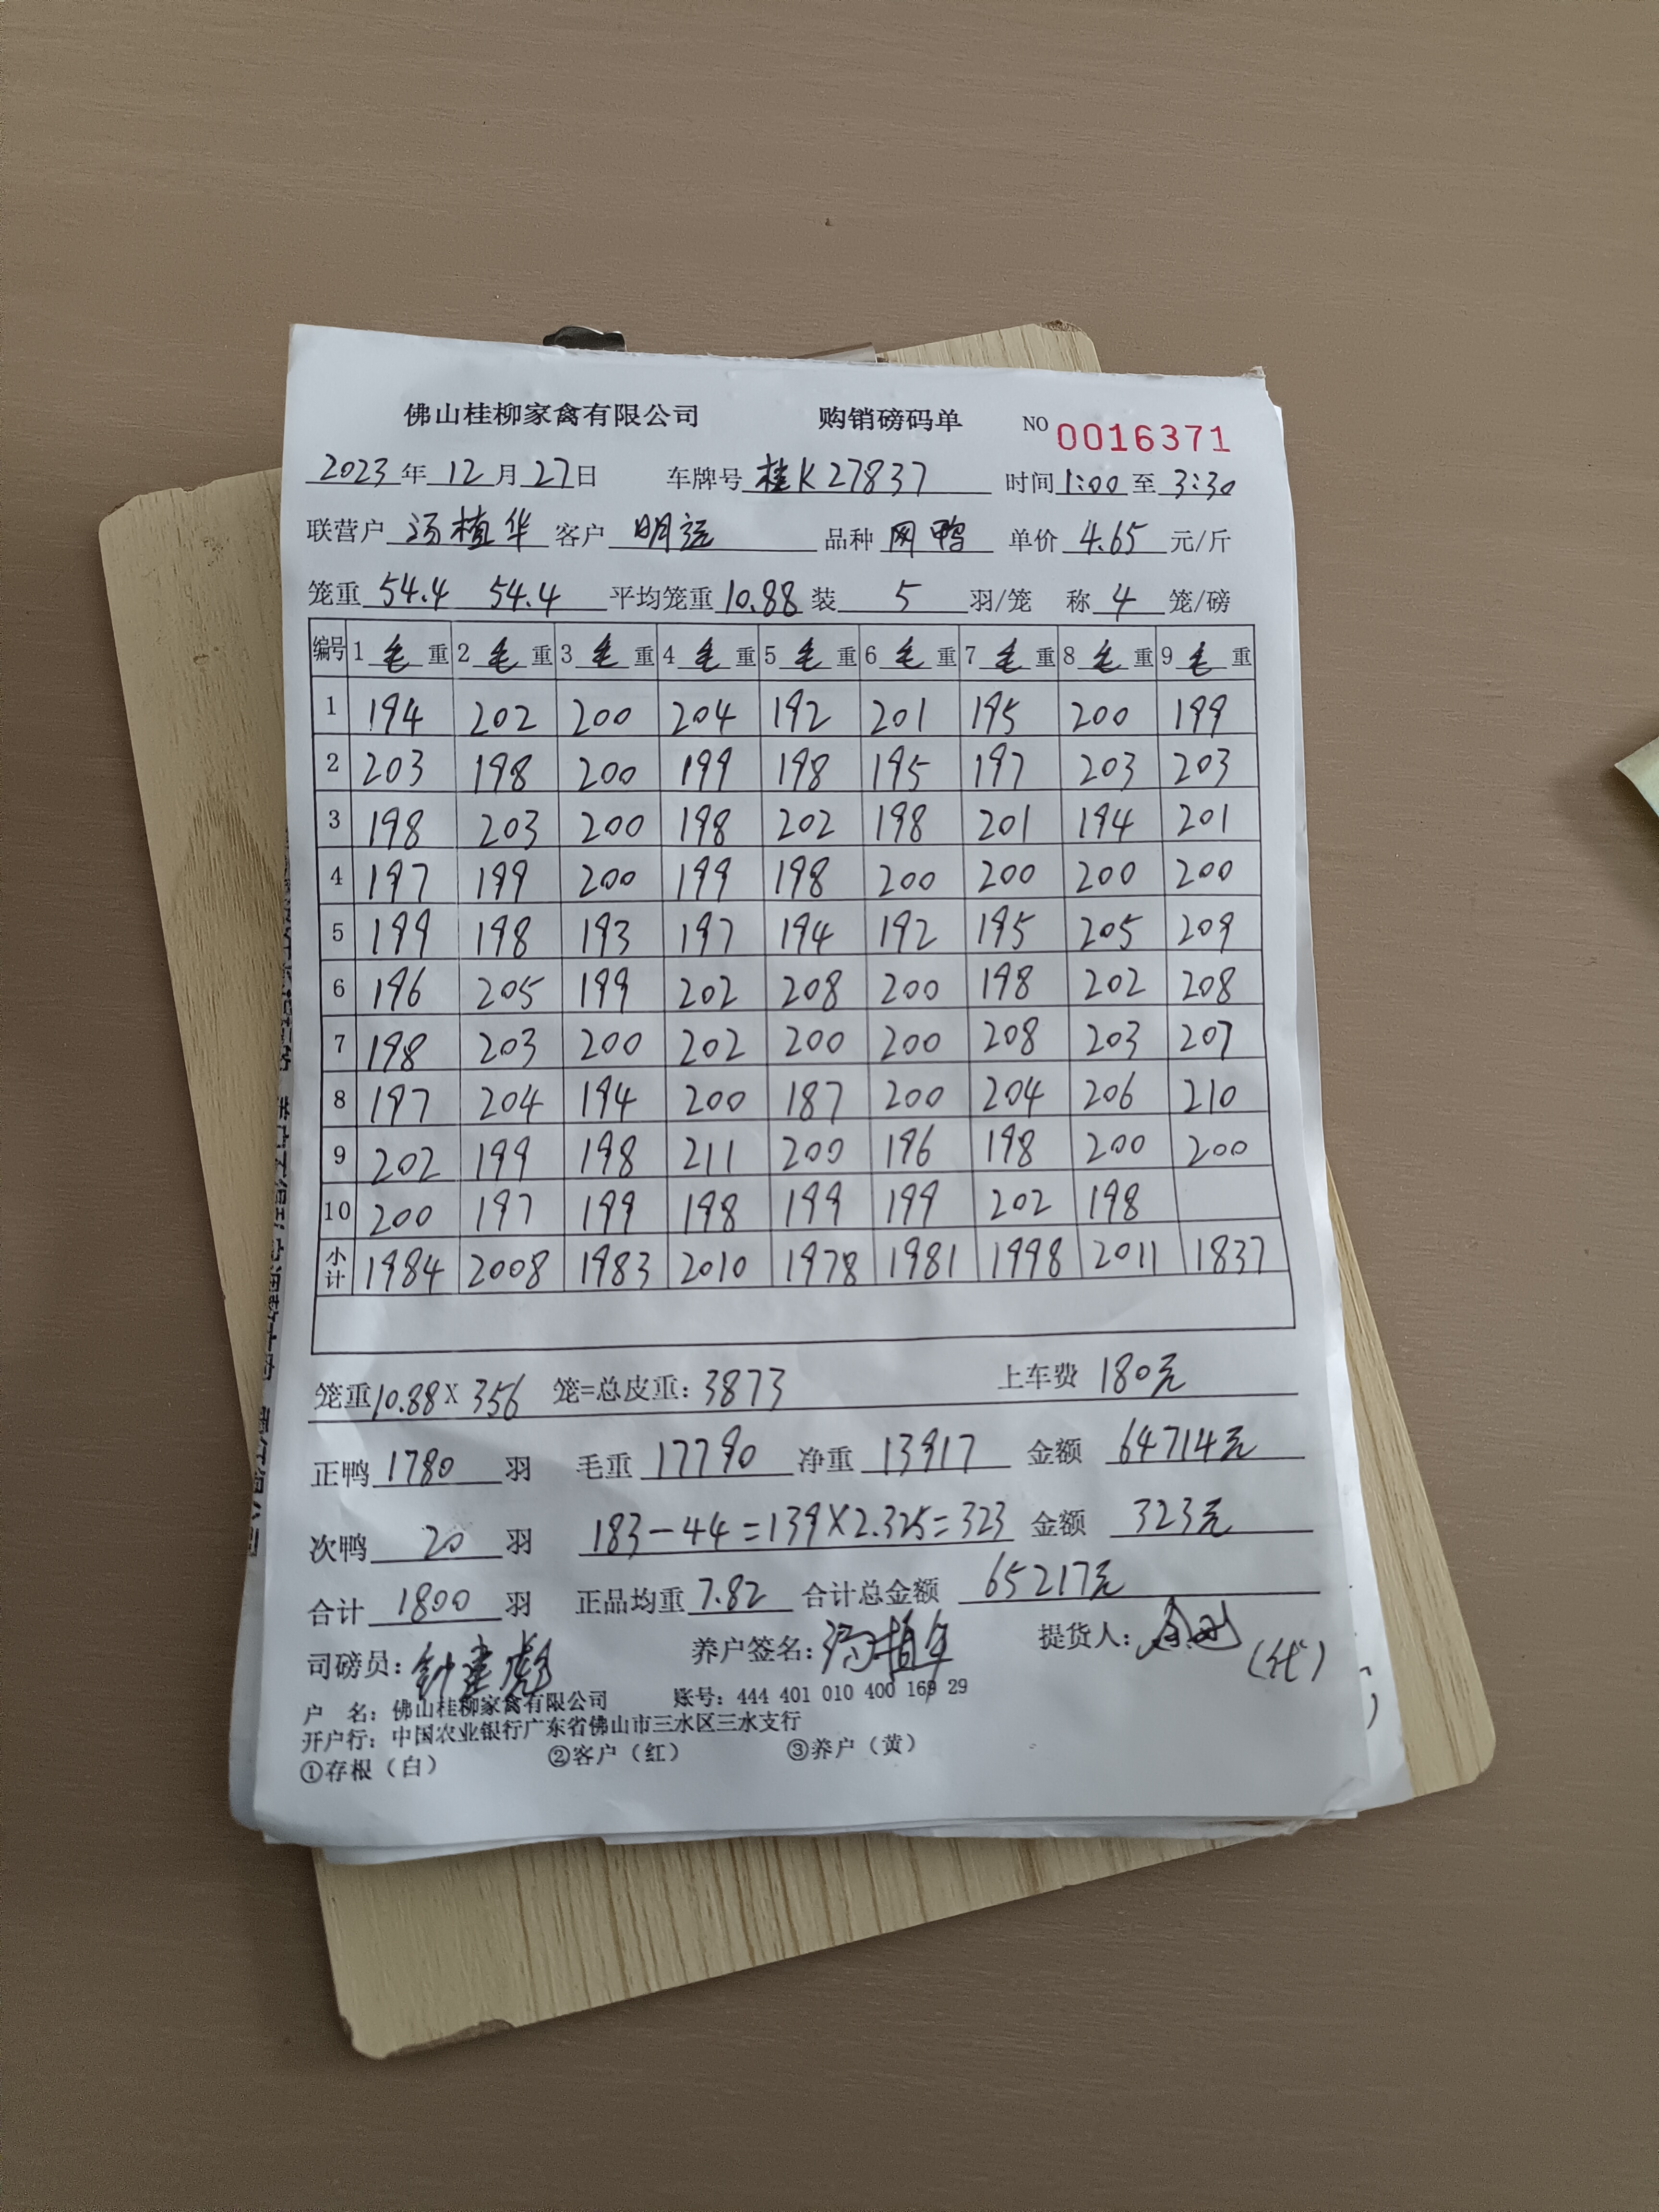 佛山桂柳家禽有限公司 购销磅码单 NO 0016371
2023年12月27日 车牌号 桂K27837 时间 1:00 至 3:30
联营户 汤植华 客户 明运 品种 网鸭 单价 4.65 元/斤
笼重 54.4 54.4 平均笼重 10.88 装 5 羽/笼 称 4 笼/磅
编号 1 毛 重 2 毛 重 3 毛 重 4 毛 重 5 毛 重 6 毛 重 7 毛 重 8 毛 重 9 毛 重
1 194 202 200 204 192 201 195 200 199
2 203 198 200 199 198 195 197 203 203
3 198 203 200 198 202 198 201 194 201
4 197 199 200 199 198 200 200 200 200
5 199 198 193 197 194 192 195 205 209
6 196 205 199 202 208 200 198 202 208
7 198 203 200 202 200 200 208 203 207
8 197 204 194 200 187 200 204 206 210
9 202 199 198 211 200 196 198 200 200
10 200 197 199 198 199 199 202 198
小计 1984 2008 1983 2010 1978 1981 1998 2011 1837
笼重 10.88 X 356 笼=总皮重: 3873 上车费 180元
正鸭 1780 羽 毛重 17790 净重 13917 金额 64714元
次鸭 20 羽 183-44=139X2.325=323 金额 323元
合计 1800 羽 正品均重 7.82 合计总金额 65217元
司磅员: 钟建彪 养户签名: 汤植华 提货人: (代)
户 名: 佛山桂柳家禽有限公司 账号: 444 401 010 400 169 29
开户行: 中国农业银行广东省佛山市三水区三水支行
①存根(白) ②客户(红) ③养户(黄)